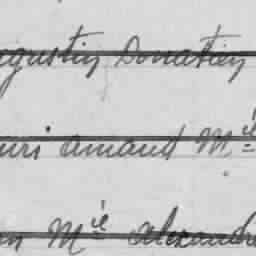 gustin Donatien
uri amand Mie
n Mie Alexandre